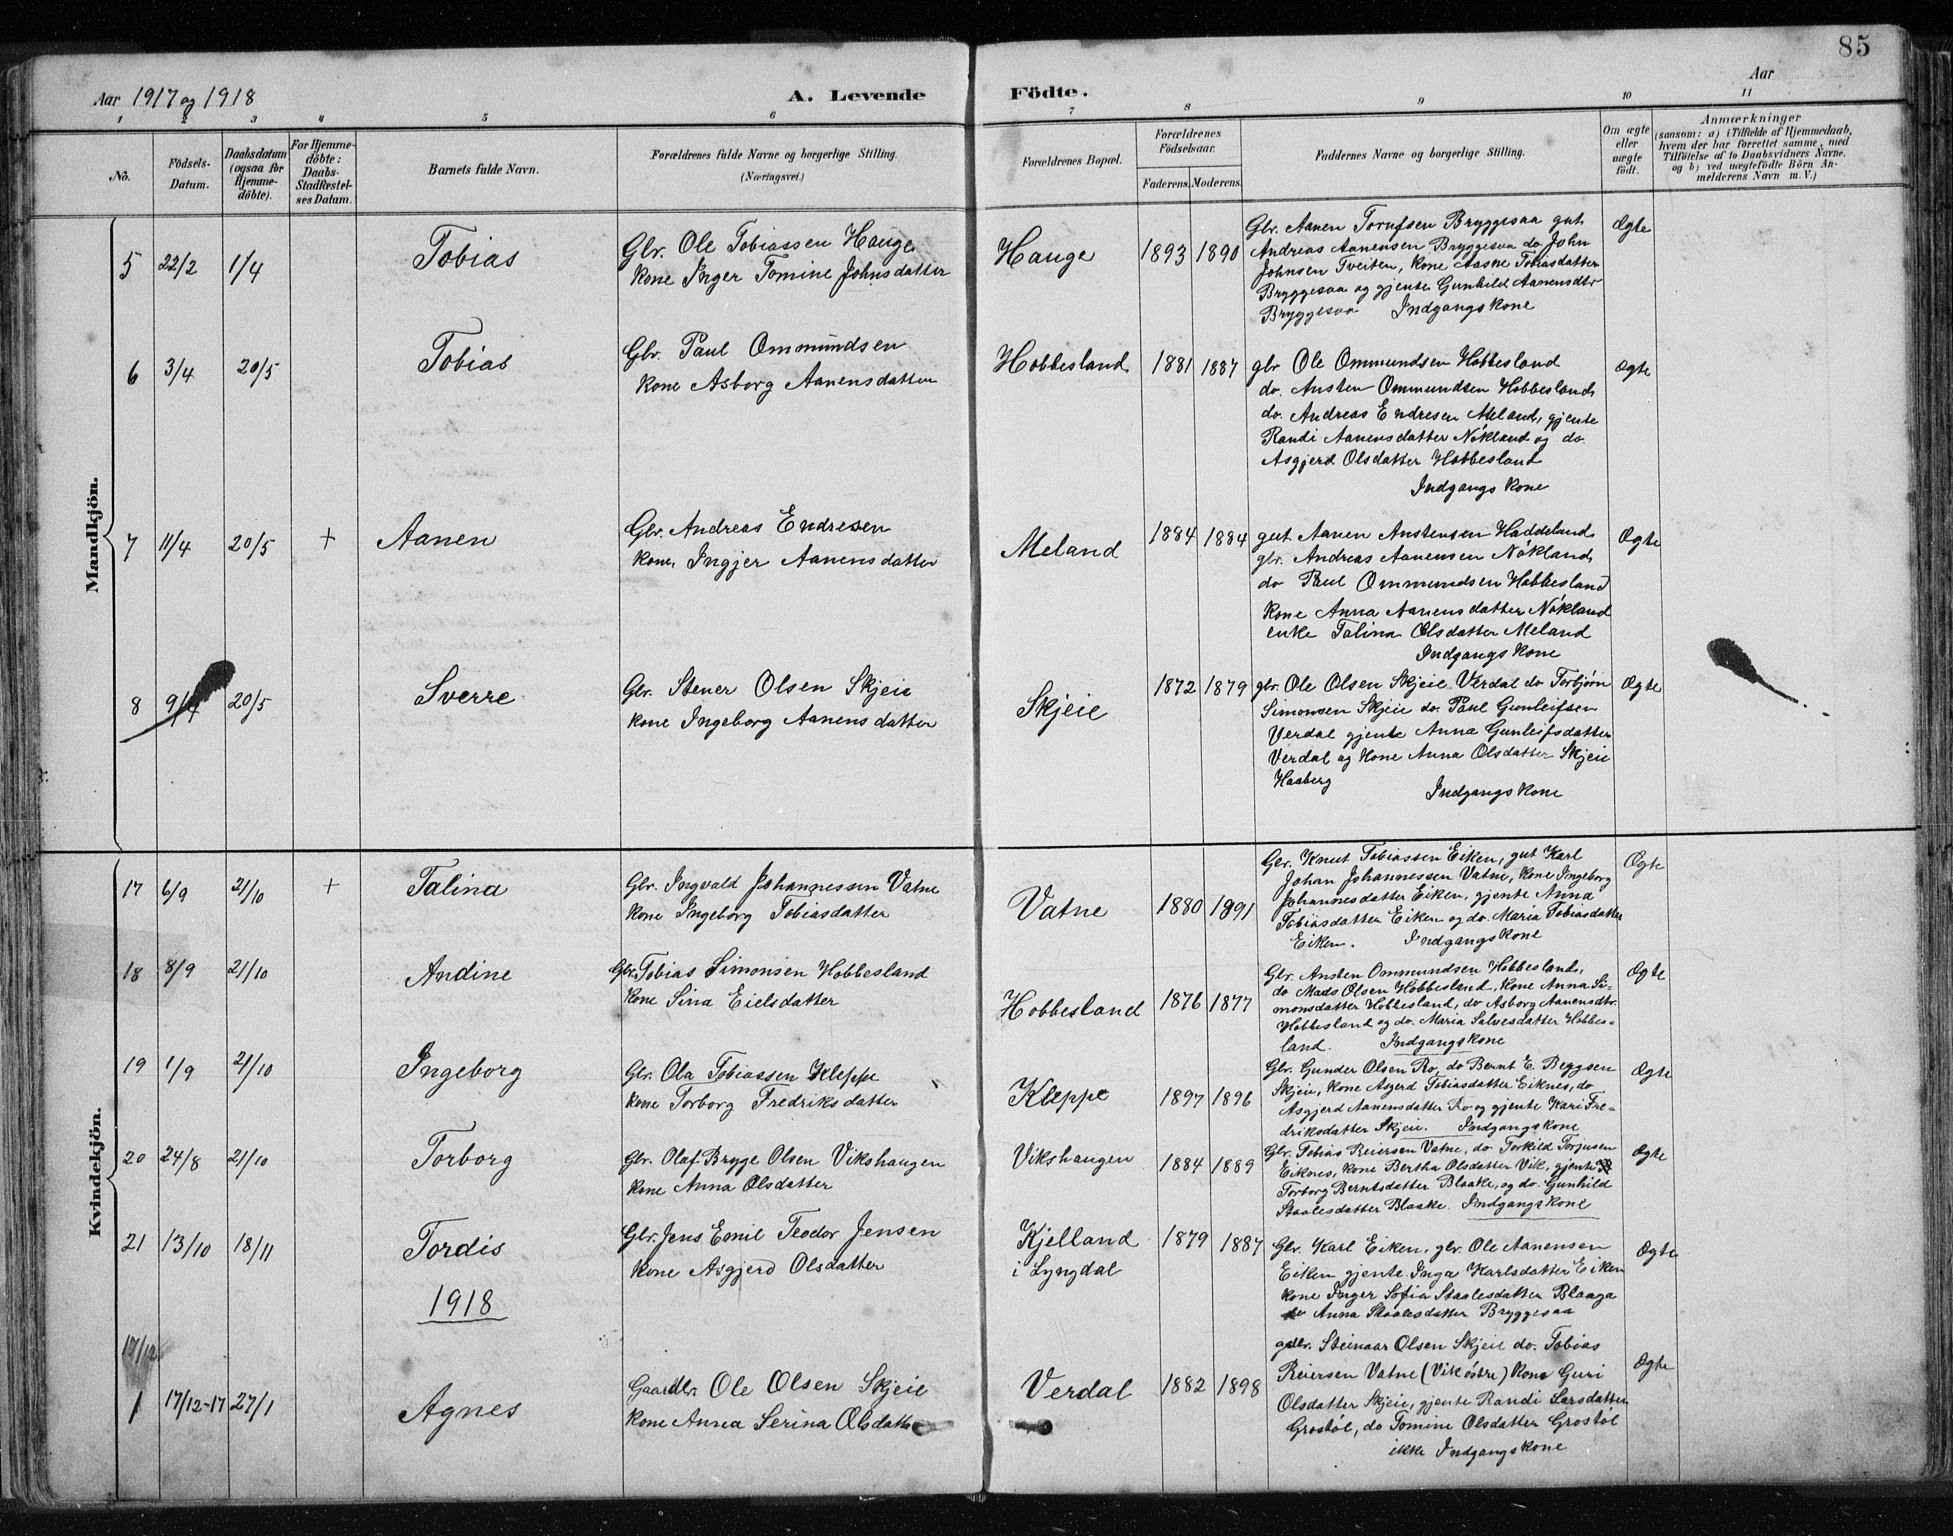 85
Aar 1917 og 1918
A. Levende Födte.
Aar
1 2 3 4 5 6 7 8 9 10 11
No.
Födsels-Datum.
Daabsdatum (ogsaa for Hjemme-döbte).
For Hjemme-döbte: Daabs-Stadfæstel-ses Datum.
Barnets fulde Navn.
Forældrenes fulde Navne og borgerlige Stilling.
(Næringsvei.)
Forældrenes Bopæl.
Forældrenes Födselsaar.
Faderens. Moderens.
Faddernes Navne og borgerlige Stilling.
Om ægte eller uægte födt.
Anmærkninger
(saasom: a) i Tilfælde af Hjemmedaab,
hvem der har forrettet samme, med
Tilföielse af to Daabsvidners Navne,
og b) ved uægtefödte Börn An-
melderens Navn m. V.)
Mandkjön.
5 22/2 1/4 Tobias
Gbr. Ole Tobiassen Hauge
kone Inger Tomine Johnsdatter
Hauge 1893 1890
Gbr. Aanen Bryggesaa gut
Andreas Aanensen Bryggesaa do John
Johnsen Tveiten, kone Aasne Tobiasdatter
Bryggesaa og gjente Gunhild Aanensdtr
Bryggesaa Indgangskone
Ægte
6 3/4 20/5 Tobias
Gbr. Paul Ommundsen
kone Asborg Aanensdatter
Hobbesland 1881 1887
gbr Ole Ommundsen Hobbesland
do. Ansten Ommundsen Hobbesland
do. Andreas Endresen Meland, gjente
Randi Aanensdatter Nökland og do.
Asgjerd Olsdatter Hobbesland
Indgangskone
Ægte
7 11/4 20/5 + Aanen
Gbr. Andreas Endresen
kone Ingjer Aanensdatter
Meland 1884 1884
gut Aanen Anstensen Haddeland
gbr. Andreas Aanensen Nökland
do Paul Ommundsen Hobbesland
kone Anna Aanensdatter Nökland
enke Talina Olsdatter Meland
Indgangskone
Ægte
8 9/4 20/5 Sverre
Gbr. Stener Olsen Skjeie
kone Ingeborg Aanensdatter
Skjeie 1872 1879
gbr. Ole Olsen Skjeie Verdal do Torbjørn
Simonsen Skjeie do. Paul Gunleifsen
Verdal gjente Anna Gunleifsdatter
Verdal og Kone Anna Olsdatter Skjeie
Haaberg
Indgangskone
Ægte
Kvindekjön.
17 6/9 21/10 + Talina
Gbr. Ingvald Johannessen Vatne
kone Ingeborg Tobiasdatter
Vatne 1880 1891
Gbr. Knut Tobiassen Eiken, gut Karl
Johan Johannessen Vatne, kone Ingeborg
Johannesdatter Eiken, gjente Anna
Tobiasdatter Eiken og do. Maria Tobiasdatter
Eiken. Indgangskone
Ægte
18 8/9 21/10 Andine
Gbr. Tobias Simonsen Hobbesland
kone Sina Eielsdatter
Hobbesland 1876 1877
Gbr. Ansten Ommundsen Hobbesland,
do Mads Olsen Hobbesland, kone Anna Si-
monsdatter Hobbesland, do Asborg Aanensdtr.
Hobbesland og do. Maria Salvesdatter Hobbes-
land. Indgangskone
Ægte
19 1/9 21/10 Ingeborg
Gbr. Ola Tobiassen Kleppe
kone Torborg Fredriksdatter
Kleppe 1897 1896
Gbr. Gunder Olsen Ro, do Bernt E. Berggsen
Skjeie, kone Asgerd Tobiasdatter Eiknes, do
Asgjerd Aanensdatter Ro og gjente Kari Fre-
driksdatter Skjeie. Indgangskone
Ægte
20 24/8 21/10 Torborg
Gbr. Olaf Bryge Olsen Vikshaugen
kone Anna Olsdatter
Vikshaugen 1884 1889
Gbr. Tobias Reiersen Vatne, do Torkild Torjusen
Eiknes, kone Bertha Olsdatter Vik, gjente
Torborg Berntsdatter Blaake, og do. Gunhild
Staalesdatter Blaake. Indgangskone
Ægte
21 13/10 18/11 Tordis
Gbr. Jens Emil Teodor Jensen
kone Asgjerd Olsdatter
Kjelland
i Lyngdal
1879 1887
Gbr. Karl Eiken, gbr. Ole Aanensen
Eiken gjente Inga Karlsdatter Eiken
kone Inger Sofia Staalesdatter Blaaga
do Anna Staalesdatter Bryggesaa
Ægte
1918
17/12
1 17/12-17 27/1 Agnes
Gaardbr. Ole Olsen Skjeie
kone Anna Serina Olsdatter
Verdal 1882 1898
gbr. Steinaar Olsen Skjeie do. Tobias
Reiersen Vatne (Vik östre) kone Guri
Olsdatter Skjeie, gjente Randi Larsdatter
Grostöl, do Tomine Olsdatter Grostöl
ikke Indgangskone
Ægte